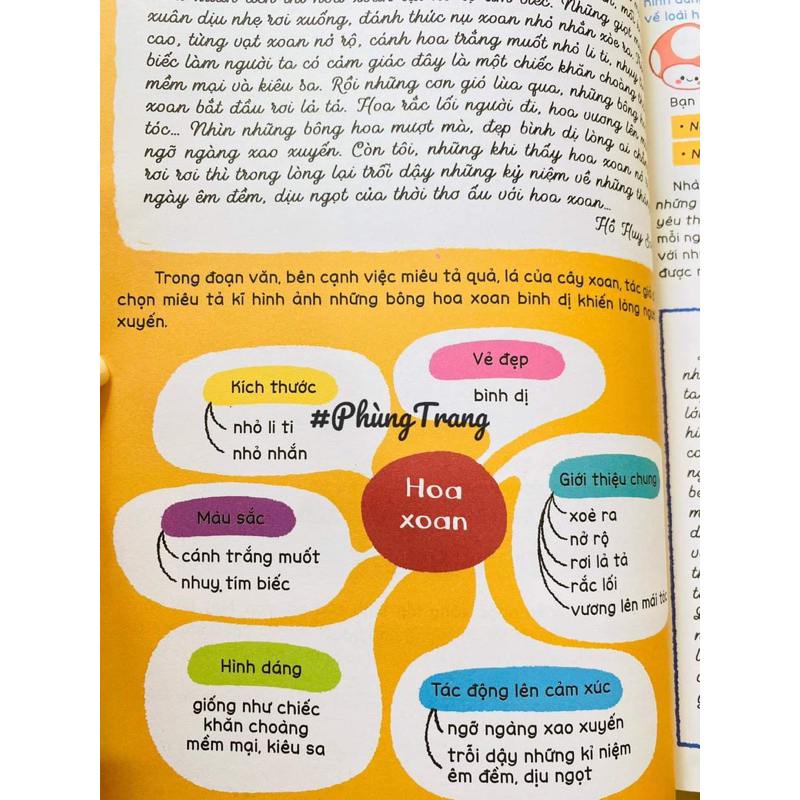 xuân dịu nhẹ rơi xuống, đánh thức nụ xoan nhỏ nhắn xòe ra.
cao, từng vạt xoan nở rộ, cánh hoa trắng muốt nhỏ li ti, nhuỵ
biếc làm người ta có cảm giác đây là một chiếc khăn choàng
mềm mại và kiêu sa. Rồi những cơn gió lùa qua, những bông
xoan bắt đầu rơi lả tả. Hoa rắc lối người đi, hoa vương lên
tóc... Nhìn những bông hoa mượt mà, đẹp bình dị lòng ai
ngỡ ngàng xao xuyến. Còn tôi, những khi thấy hoa xoan nở
rơi rơi thì trong lòng lại trỗi dậy những kỷ niệm về những
ngày êm đềm, dịu ngọt của thời thơ ấu với hoa xoan...
Hồ Huy
Trong đoạn văn, bên cạnh việc miêu tả quả, lá của cây xoan, tác giả
chọn miêu tả kĩ hình ảnh những bông hoa xoan bình dị khiến lòng người
xuyến.
Vẻ đẹp
bình dị
Kích thước
nhỏ li ti
nhỏ nhắn
#PhùngTrang
Hoa
xoan
Giới thiệu chung
xoè ra
nở rộ
rơi lả tả
rắc lối
vương lên mái tóc
Màu sắc
cánh trắng muốt
nhuỵ tím biếc
Hình dáng
giống như chiếc
khăn choàng
mềm mại, kiêu sa
Tác động lên cảm xúc
ngỡ ngàng xao xuyến
trỗi dậy những kỉ niệm
êm đềm, dịu ngọt
về loài
Bạn
Nhà
những
yêu th
mỗi ng
với nh
được